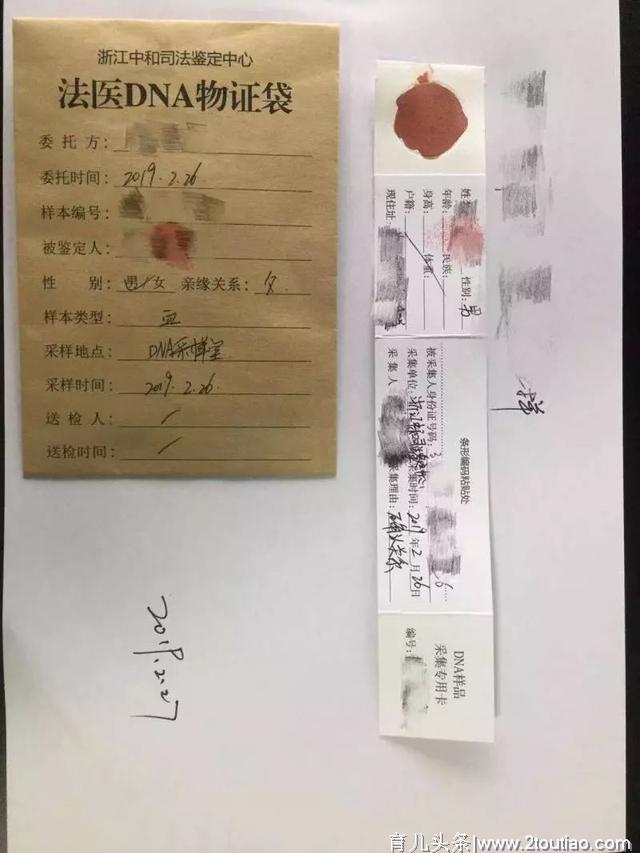 浙江中和司法鉴定中心
法医DNA物证袋
委托方:
委托时间: 2019.2.26
样本编号:
被鉴定人:
性 别: 男/女 亲缘关系: 父
样本类型: 血
采样地点: DNA采样室
采样时间: 2019.2.26.
送检人: /
送检时间: /
2019.2.27
姓名: 性别: 男
年龄: 民族:
身高: 体重:
户籍:
现住址:
条形编码粘贴处
被采集人身份证号码: 3 6
采集单位: 采集时间: 2019年2月26日
采集人 采集理由: 确认关系
DNA样品
采集专用卡
编号:
育儿头条||www.2toutiao.com